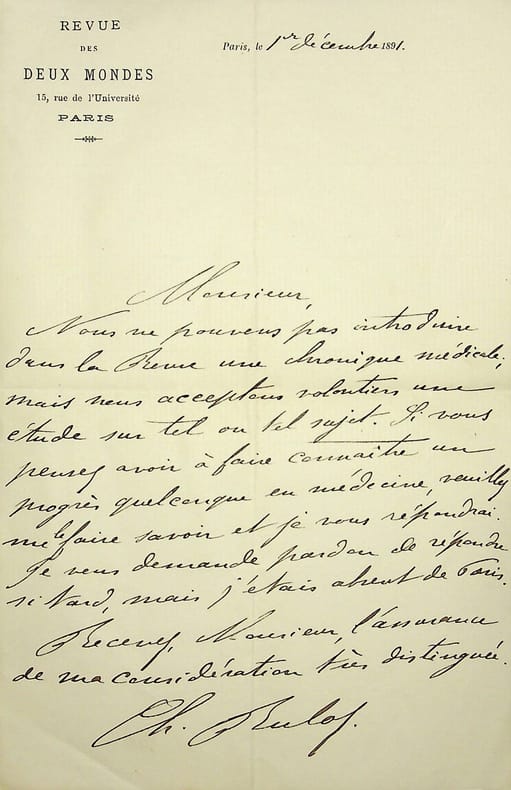 REVUE
DES
DEUX MONDES
15, rue de l'Université
PARIS
Paris, le 1er décembre 1891.
Monsieur,
Nous ne pouvons pas introduire
dans la Revue une chronique médicale;
mais nous acceptons volontiers une
étude sur tel ou tel sujet. Si vous
pensez avoir à faire connaître un
progrès quelconque en médecine, veuillez
me le faire savoir et je vous répondrai.
Je vous demande pardon de répondre
si tard, mais j'étais absent de Paris.
Recevez, Monsieur, l'assurance
de ma considération très distinguée.
Ch. Buloz.